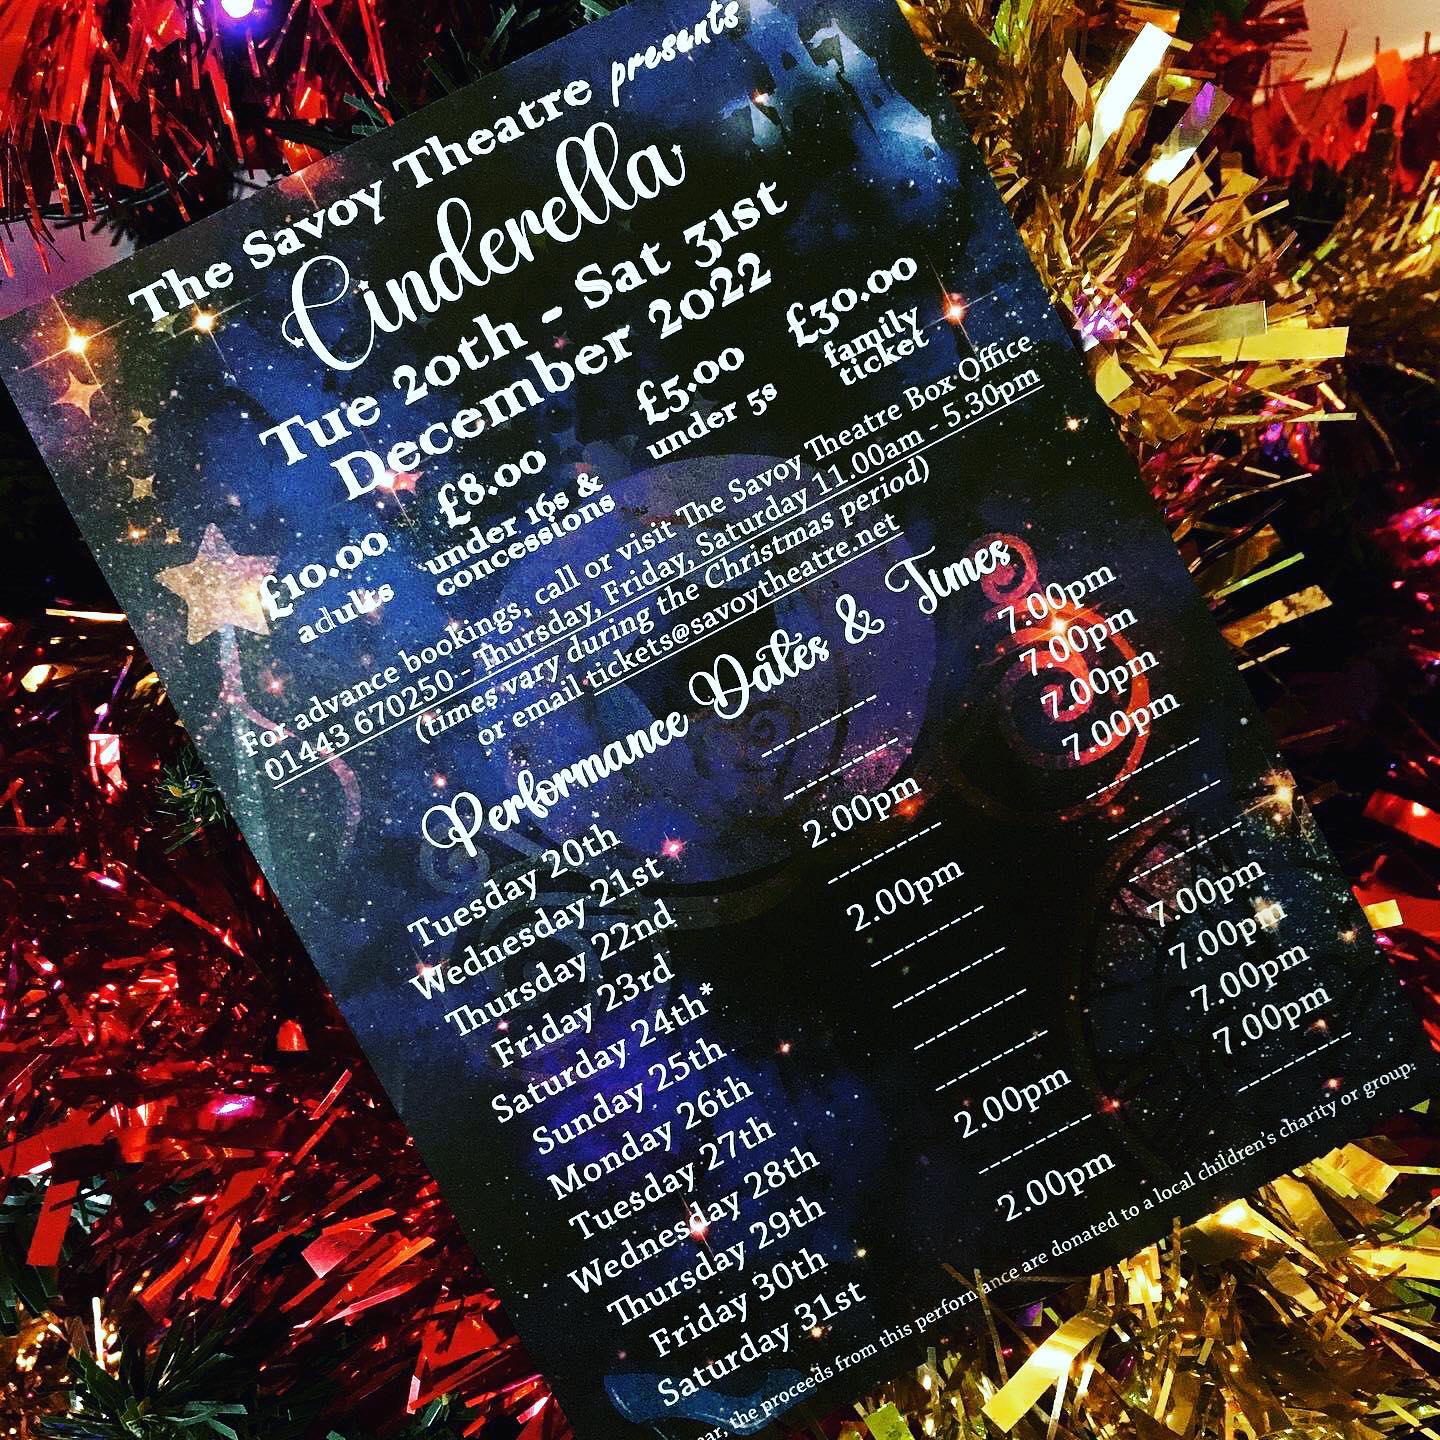 The Savoy Theatre presents
Cinderella
Tue 20th - Sat 31st
December 2022
£10.00 £8.00 £5.00 £30.00
adults under 16s & under 5s family
concessions ticket
For advance bookings, call or visit The Savoy Theatre Box Office
01443 670250 - Thursday, Friday, Saturday 11.00am - 5.30pm
(times vary during the Christmas period)
or email tickets@savoytheatre.net
Performance Dates & Times
Tuesday 20th ---------- 7.00pm
Wednesday 21st ---------- 7.00pm
Thursday 22nd 2.00pm 7.00pm
Friday 23rd ---------- 7.00pm
Saturday 24th* 2.00pm ----------
Sunday 25th ---------- ----------
Monday 26th ---------- ----------
Tuesday 27th ---------- 7.00pm
Wednesday 28th ---------- 7.00pm
Thursday 29th 2.00pm 7.00pm
Friday 30th ---------- 7.00pm
Saturday 31st 2.00pm ----------
the proceeds from this performance are donated to a local children's charity or group.